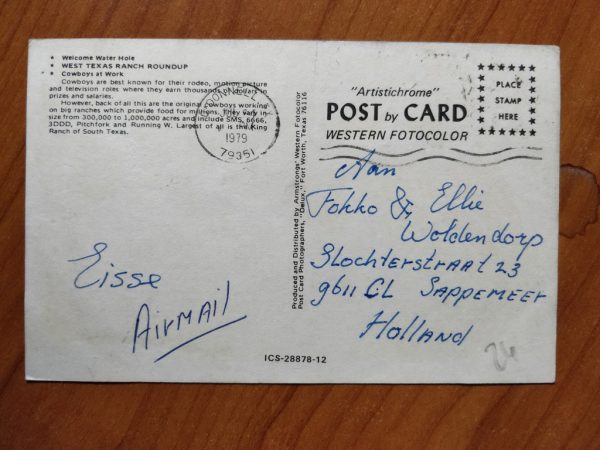 ★ Welcome Water Hole
★ WEST TEXAS RANCH ROUNDUP
★ Cowboys at Work
Cowboys are best known for their rodeo, motion picture
and television roles where they earn thousands of dollars in
prizes and salaries.
However, back of all this are the original cowboys working
on big ranches which provide food for millions. They vary in
size from 300,000 to 1,000,000 acres and include SMS, 6666,
3DDD, Pitchfork and Running W. Largest of all is the King
Ranch of South Texas.
1979
79351
Eisse
AIRMAIL
ICS-28878-12
Produced and Distributed by Armstrongs' Western Fotocolor
Post Card Photographers, "Delux," Fort Worth, Texas 76116
"Artistichrome"
POST by CARD
WESTERN FOTOCOLOR
PLACE
STAMP
HERE
Aan
Fokko & Ellie
Woldendorp
Slochterstraat 23
9611 CL Sappemeer
Holland